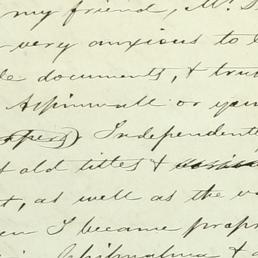 my friend, Mr.
very anxious to
documents, & trus
Aspinwall or your
Independent
old titles &
t, as well as the
en I became propr
Chihuahua &